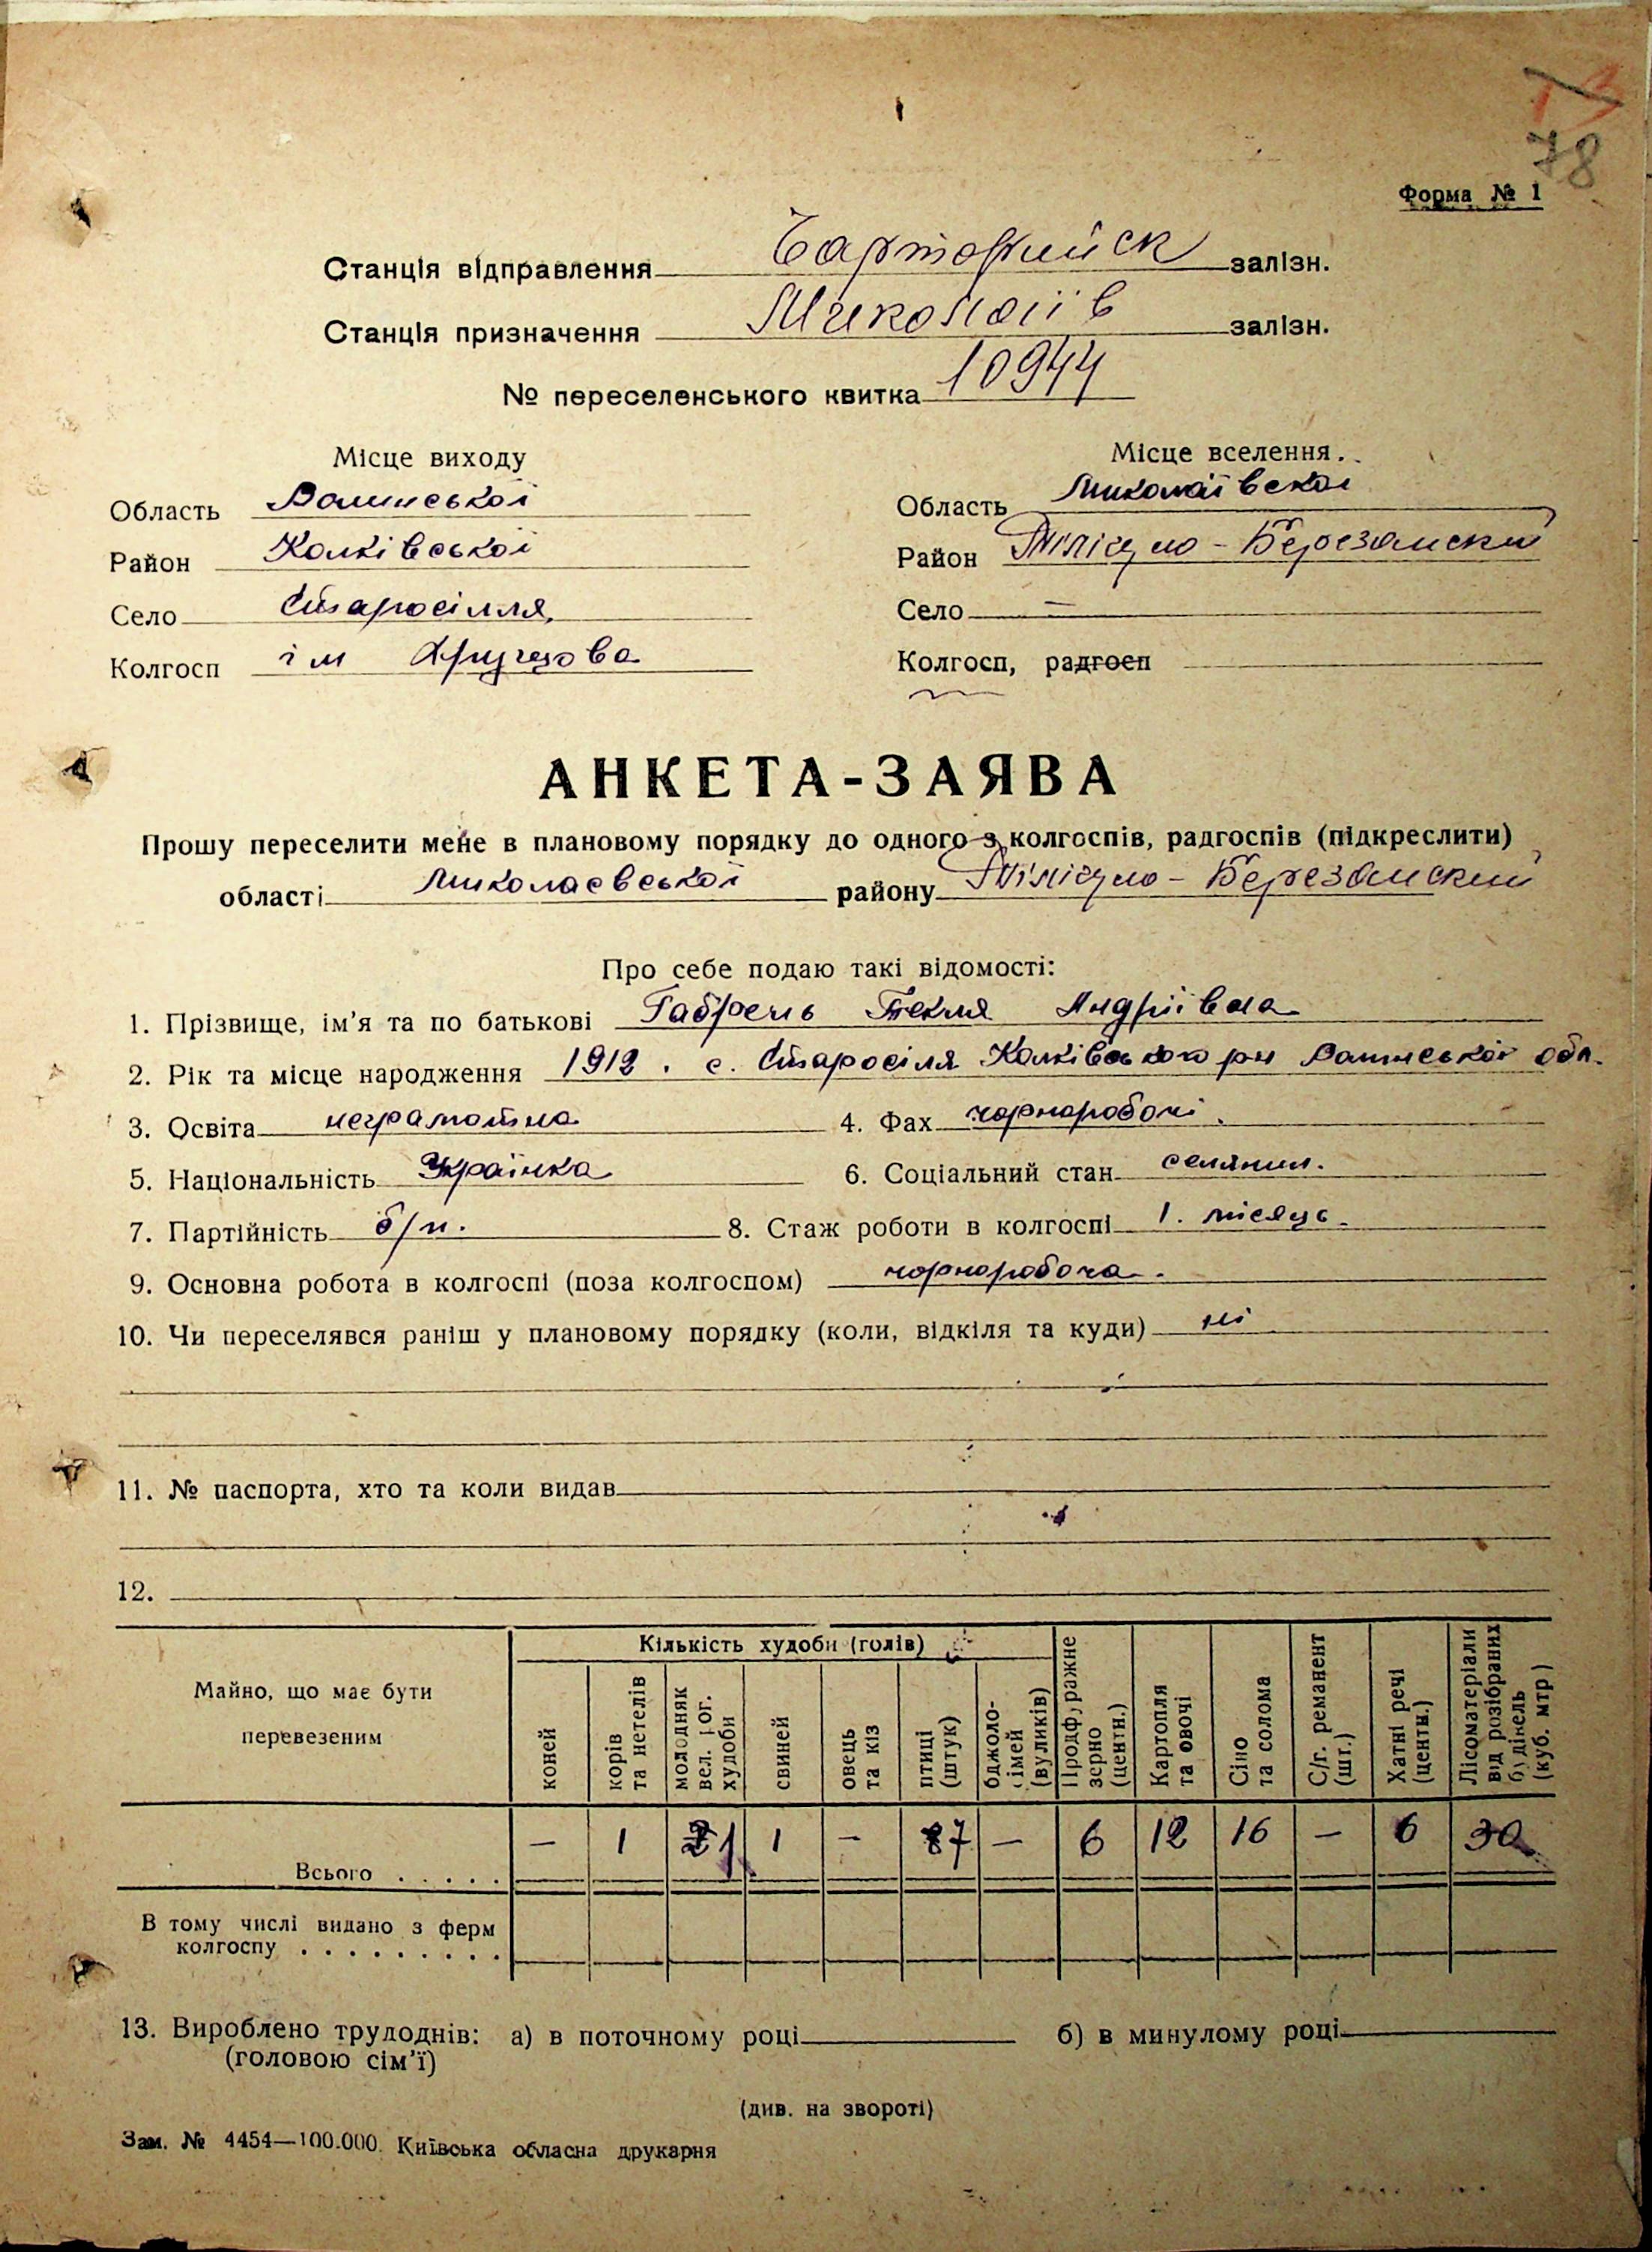 78
Форма № 1
Станція відправлення Чарторийск залізн.
Станція призначення Миколаїв залізн.
№ переселенського квитка 10944
Місце виходу
Місце вселення.
Область Волинської
Область Миколаївскої
Район Колківської
Район Тілігуло-Березанский
Село Старосілля,
Село —
Колгосп ім Хрущова
Колгосп, радгосп
АНКЕТА-ЗАЯВА
Прошу переселити мене в плановому порядку до одного з колгоспів, радгоспів (підкреслити)
області Миколаєвської району Тілігуло-Березанский
Про себе подаю такі відомості:
1. Прізвище, ім'я та по батькові Габрень Текля Андріївна
2. Рік та місце народження 1912. с. Старосіля Колківського рн Волинської обл.
3. Освіта неграмотна 4. Фах чорноробочі.
5. Національність Українка 6. Соціальний стан селянин.
7. Партійність б/п. 8. Стаж роботи в колгоспі 1. місяць.
9. Основна робота в колгоспі (поза колгоспом) чорноробоча.
10. Чи переселявся раніш у плановому порядку (коли, відкіля та куди) ні
11. № паспорта, хто та коли видав
12.
Майно, що має бути перевезеним
Кількість худоби (голів)
коней
корів та нетелів
молодняк вел. рог. худоби
свиней
овець та кіз
птиці (штук)
бджоло-сімей (вуликів)
Продфуражне зерно (центн.)
Картопля та овочі
Сіно та солома
С/г. реманент (шт.)
Хатні речі (центн.)
Лісоматеріали від розібраних будівель (куб. мтр)
Всього . . . . . — 1 1 1 — 7 — 6 12 16 — 6 30
В тому числі видано з ферм
колгоспу . . . . . . . . .
13. Вироблено трудоднів: а) в поточному році б) в минулому році
(головою сім'ї)
(див. на звороті)
Зам. № 4454—100.000. Київська обласна друкарня